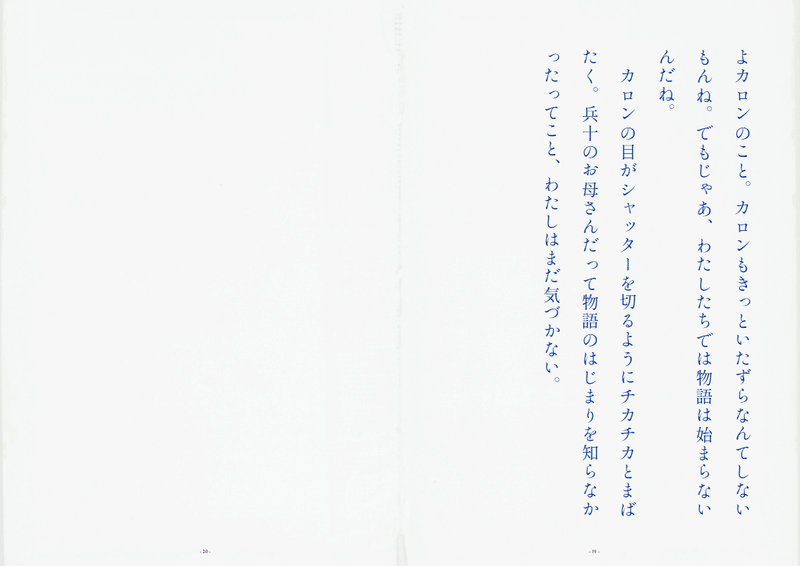 よカロンのこと。カロンもきっといたずらなんてしない
もんね。でもじゃあ、わたしたちでは物語は始まらない
んだね。
カロンの目がシャッターを切るようにチカチカとまば
たく。兵十のお母さんだって物語のはじまりを知らなか
ったってこと、わたしはまだ気づかない。
- 19 -
- 20 -